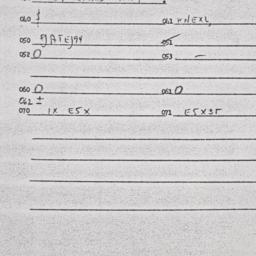 040 041 KNEXL
050 GATEJ94 051
052 0 053 –
060 0 061 0
062 ±
070 1X E5X 071 E5X3T